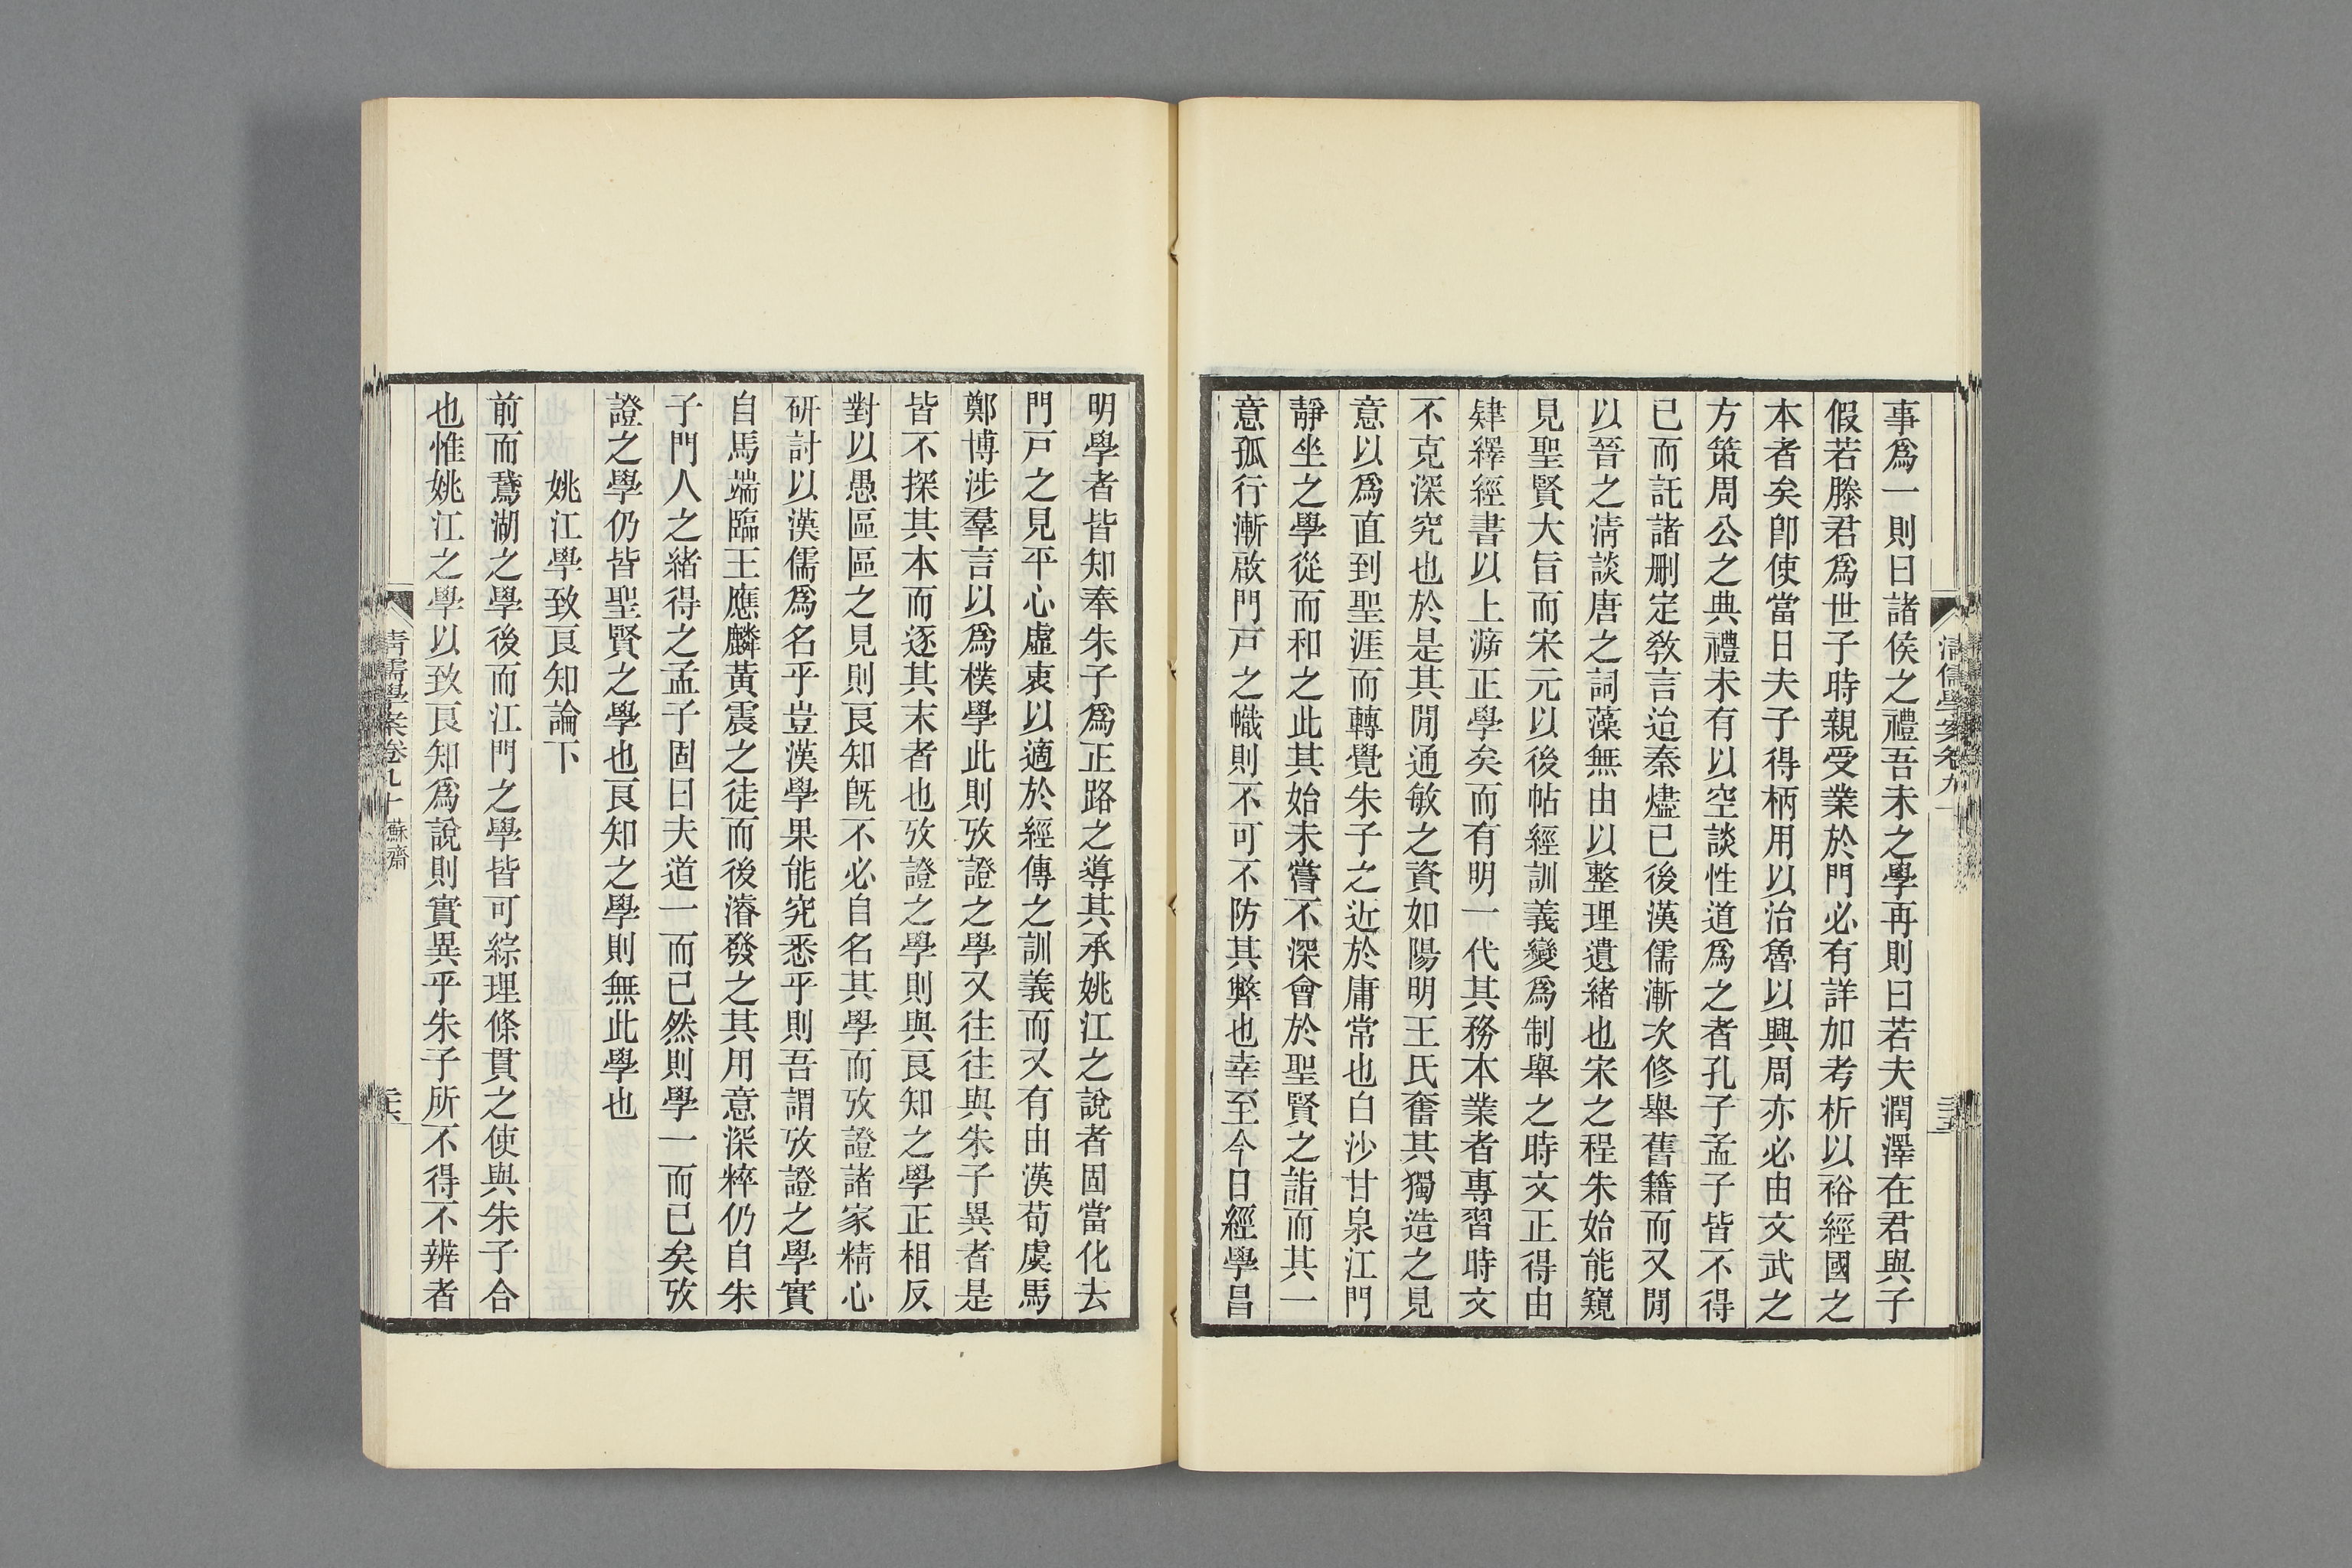 清儒學案卷九
事爲一則曰諸侯之禮吾未之學再則曰若夫潤澤在君與子
假若滕君爲世子時親受業於門必有詳加考析以裕經國之
本者矣卽使當日夫子得柄用以治魯以興周亦必由文武之
方策周公之典禮未有以空談性道爲之者孔子孟子皆不得
已而託諸删定敎言迨秦燼已後漢儒漸次修舉舊籍而又閒
以晉之淸談唐之詞藻無由以整理遺緖也宋之程朱始能窺
見聖賢大旨而宋元以後帖經訓義變爲制舉之時文正得由
肄繹經書以上溯正學矣而有明一代其務本業者專習時文
不克深究也於是其閒通敏之資如陽明王氏奮其獨造之見
意以爲直到聖涯而轉覺朱子之近於庸常也白沙甘泉江門
靜坐之學從而和之此其始未嘗不深會於聖賢之詣而其一
意孤行漸啟門戸之幟則不可不防其弊也幸至今日經學昌
明學者皆知奉朱子爲正路之導其承姚江之說者固當化去
門戸之見平心虛衷以適於經傳之訓義而又有由漢荀虞馬
鄭博涉羣言以爲樸學此則攷證之學又往往與朱子異者是
皆不探其本而逐其末者也攷證之學則與良知之學正相反
對以愚區區之見則良知旣不必自名其學而攷證諸家精心
研討以漢儒爲名乎豈漢學果能究悉乎則吾謂攷證之學實
自馬端臨王應麟黃震之徒而後濬發之其用意深粹仍自朱
子門人之緖得之孟子固曰夫道一而已然則學一而已矣攷
證之學仍皆聖賢之學也良知之學則無此學也
姚江學致良知論下
前而鵞湖之學後而江門之學皆可綜理條貫之使與朱子合
也惟姚江之學以致良知爲說則實異乎朱子所不得不辨者
清儒學案卷九十 蘇齋 二六